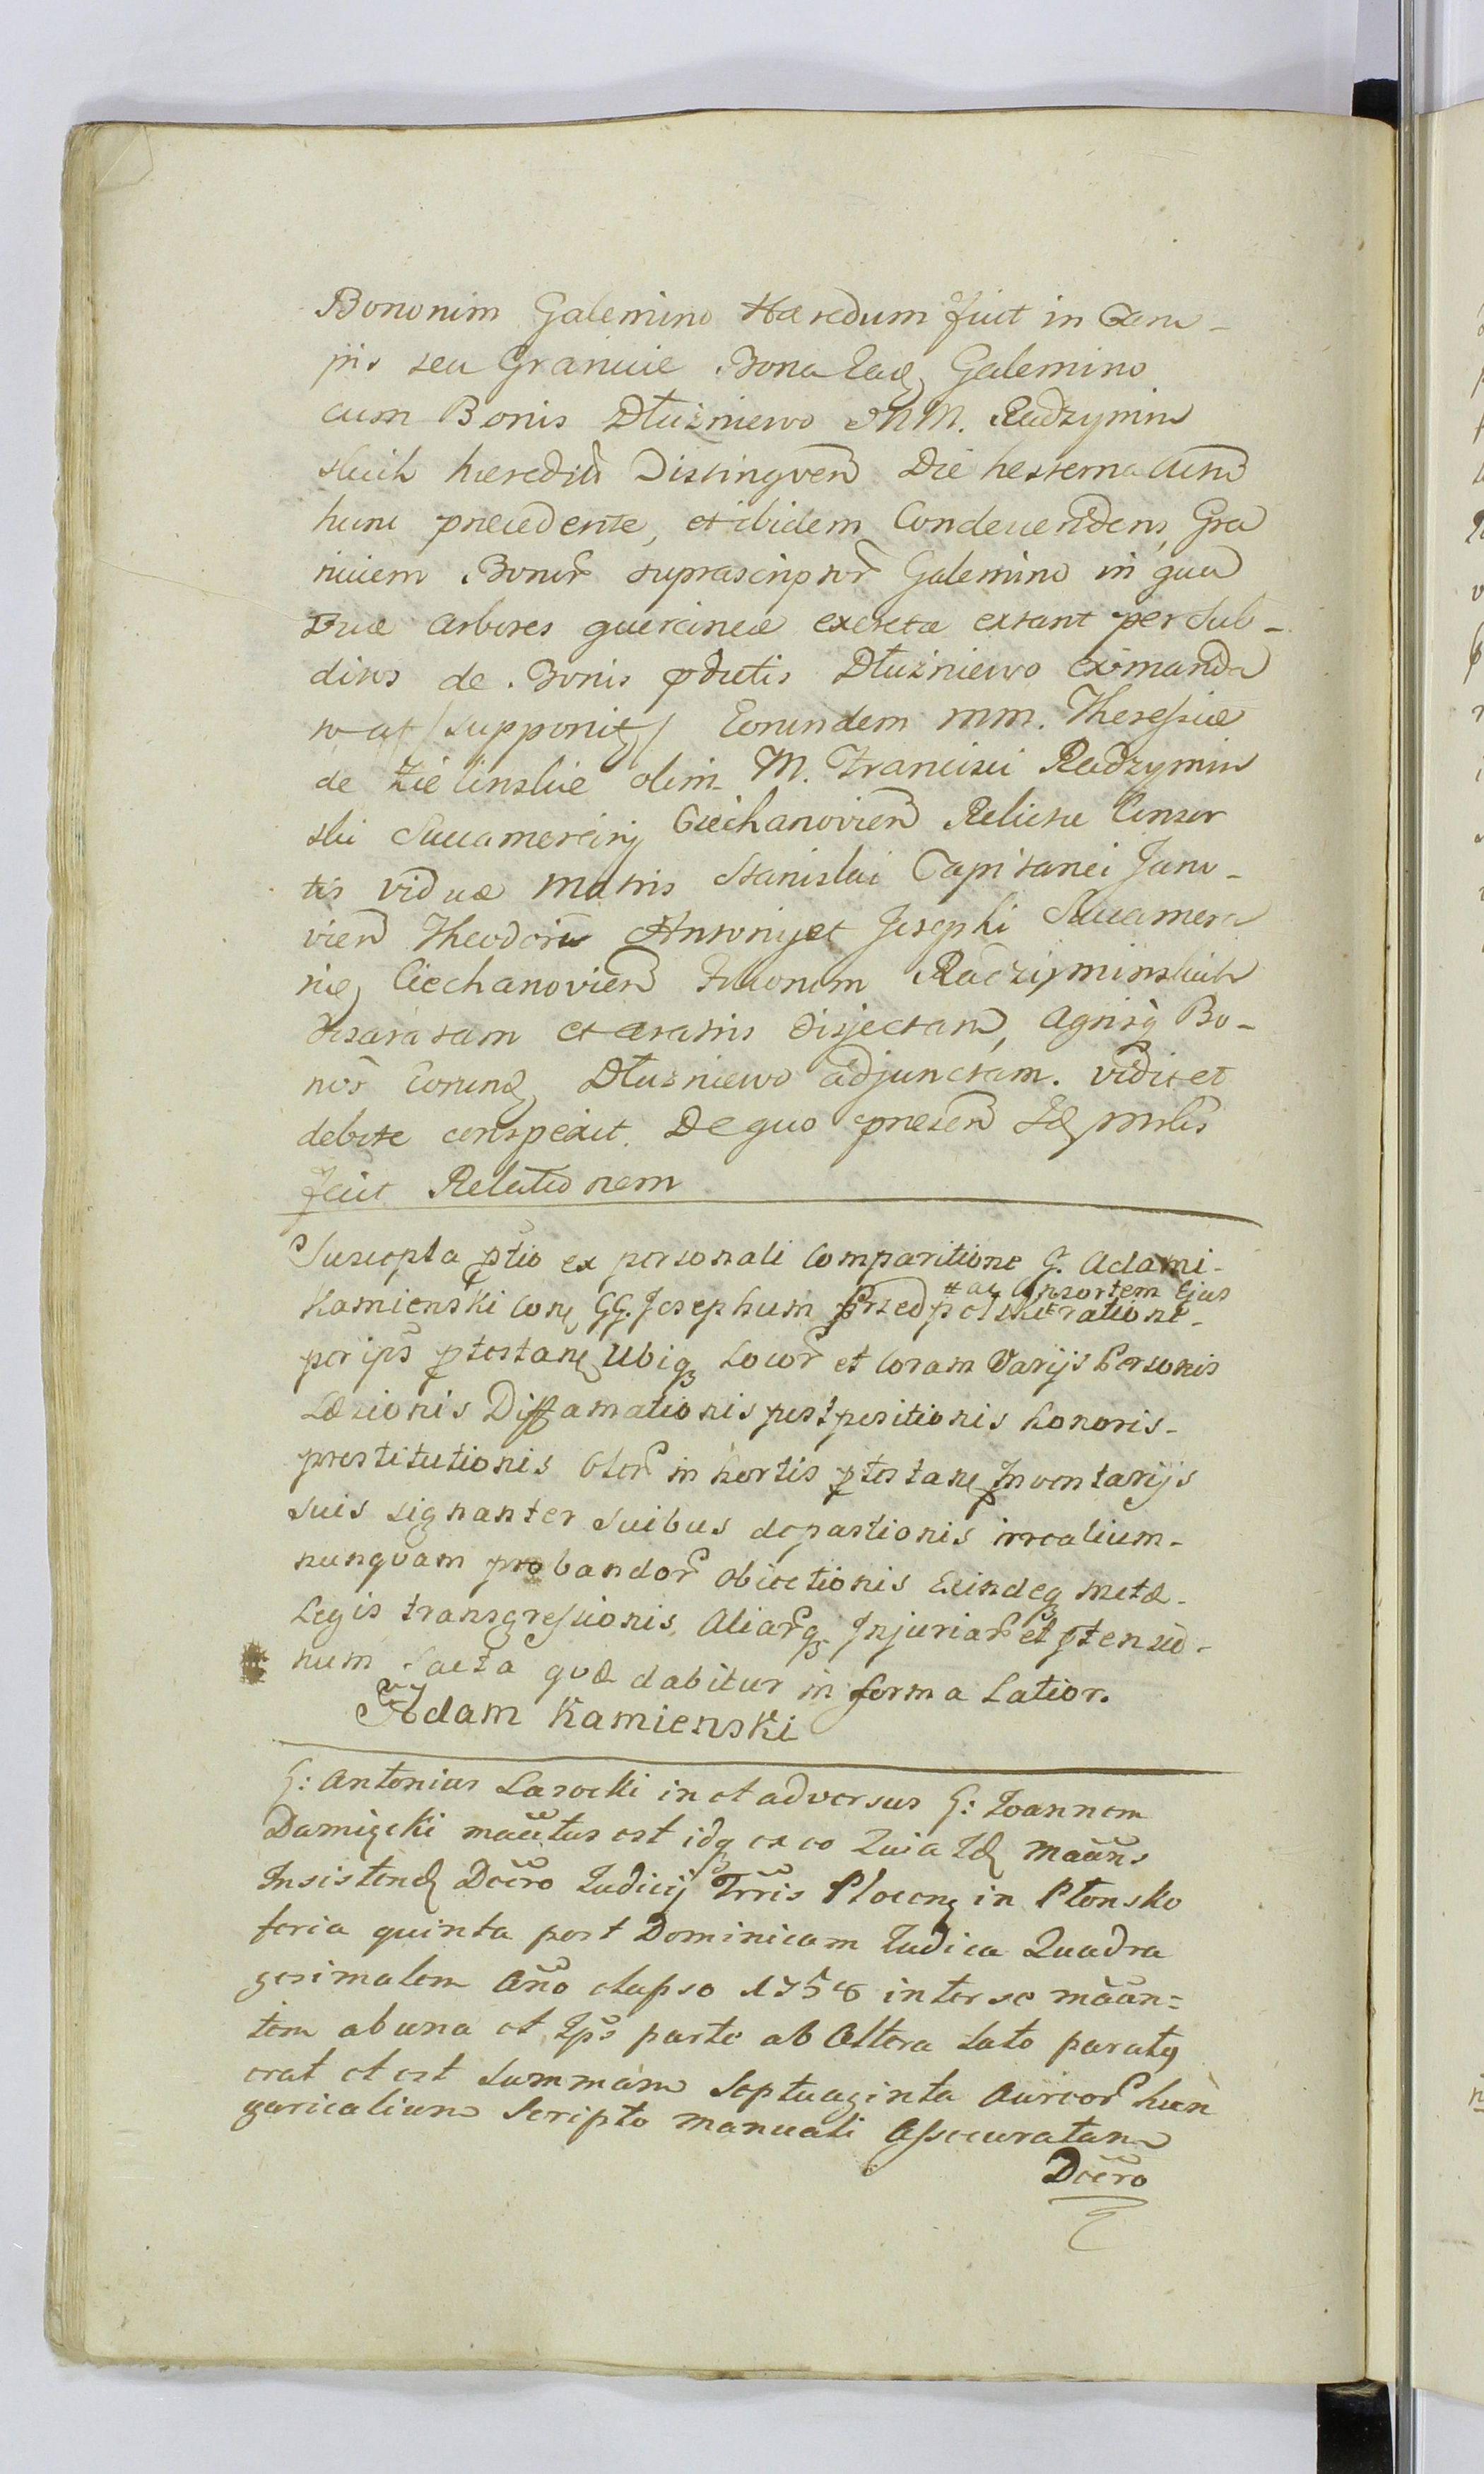 Bononim Galemino Hæredum fuit in Cam-
pis seu Granicie Bona Ead, Galemino
cum Bonis Dłużniewo MM. Radzymin
skich hæredū Distingven Die hesterna Actum
hunc præcedente, et ibidem Condeuendens, Gra
niciem Bonor̃ suprascriptor̃ Galemino in qua
Duæ Arbores quercineæ excretæ extant per Sub-
ditos de Bonis pdictis Dłużniewo ex manda
to at /supponitr/ Eorundem MM. Theressiæ
de Zielinskie olim M. Francisci Radzymin
ski Succamerarij Ciechanovien Relictæ Consor
tis viduæ Matris Stanislai Capitanei Jano-
vien Theodori Antonij et Josephi Succamera
rie, Ciechanovien Filiorum Radzyminskich
Exaratam et aratris disjectam, Agrisq Bo-
nor̃ Eorund, Dłużniewo adjunctam. vidit et
debite conspexit. De quo præsen Id, Mnlis
fecit Relationem
Suscepta ptio ex personali Comparitione G. Adami-
# ac Consortem Ejus
Kamienski Con, GG. Josephum Przedpełski # ratione-
per ips ptestan, Ubiq, Locor̃ et Coram Varijs Personis
Læsionis Diffamationis postpositionis honoris-
prostitutionis Oler̃ in hortis ptestan, Inventarijs
suis signanter Suibus depastionis irrealium-
nunqvam probandor̃ Obiectionis Exindeq, metæ-
Legis transgressionis, Aliar̃q, Injuriar̃ et ptensio-
num facta qvæ dabitur in forma Latior.
Adam Kamienski
G: Antonius Lasocki in et adversus G: Joannem
Damięcki mañtus est idq, ex eo Quia Id, Mañns
Insistend, Decro Judicij Trris Plocen, in Płonsko
feria quinta post Dominicam Judica Quadra
gesimalem Año elapso 1758 inter se mãan=
tem ab una et Ips parte ab Altera Lato parat9
erat et est Summam Septuaginta Aureor̃ hun
garicalium Scripto manuali Assecuratam
Decro